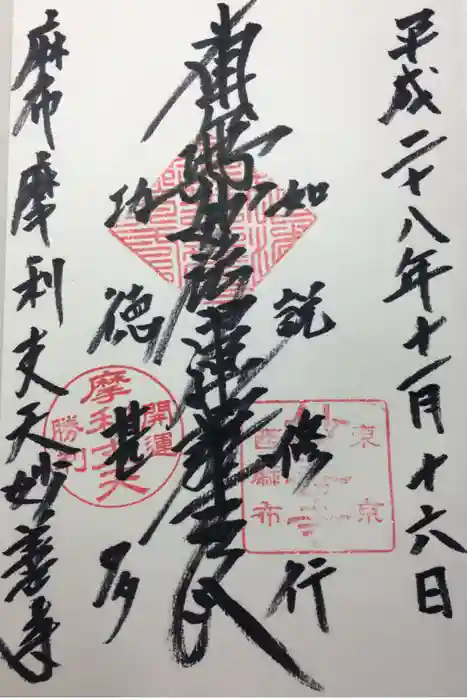 平成二十八年十一月十六日
如説修行
南無妙法蓮華経
功徳甚多
麻布摩利支天妙善寺
東京
妙善寺
西麻布
開運
摩利支天
勝利